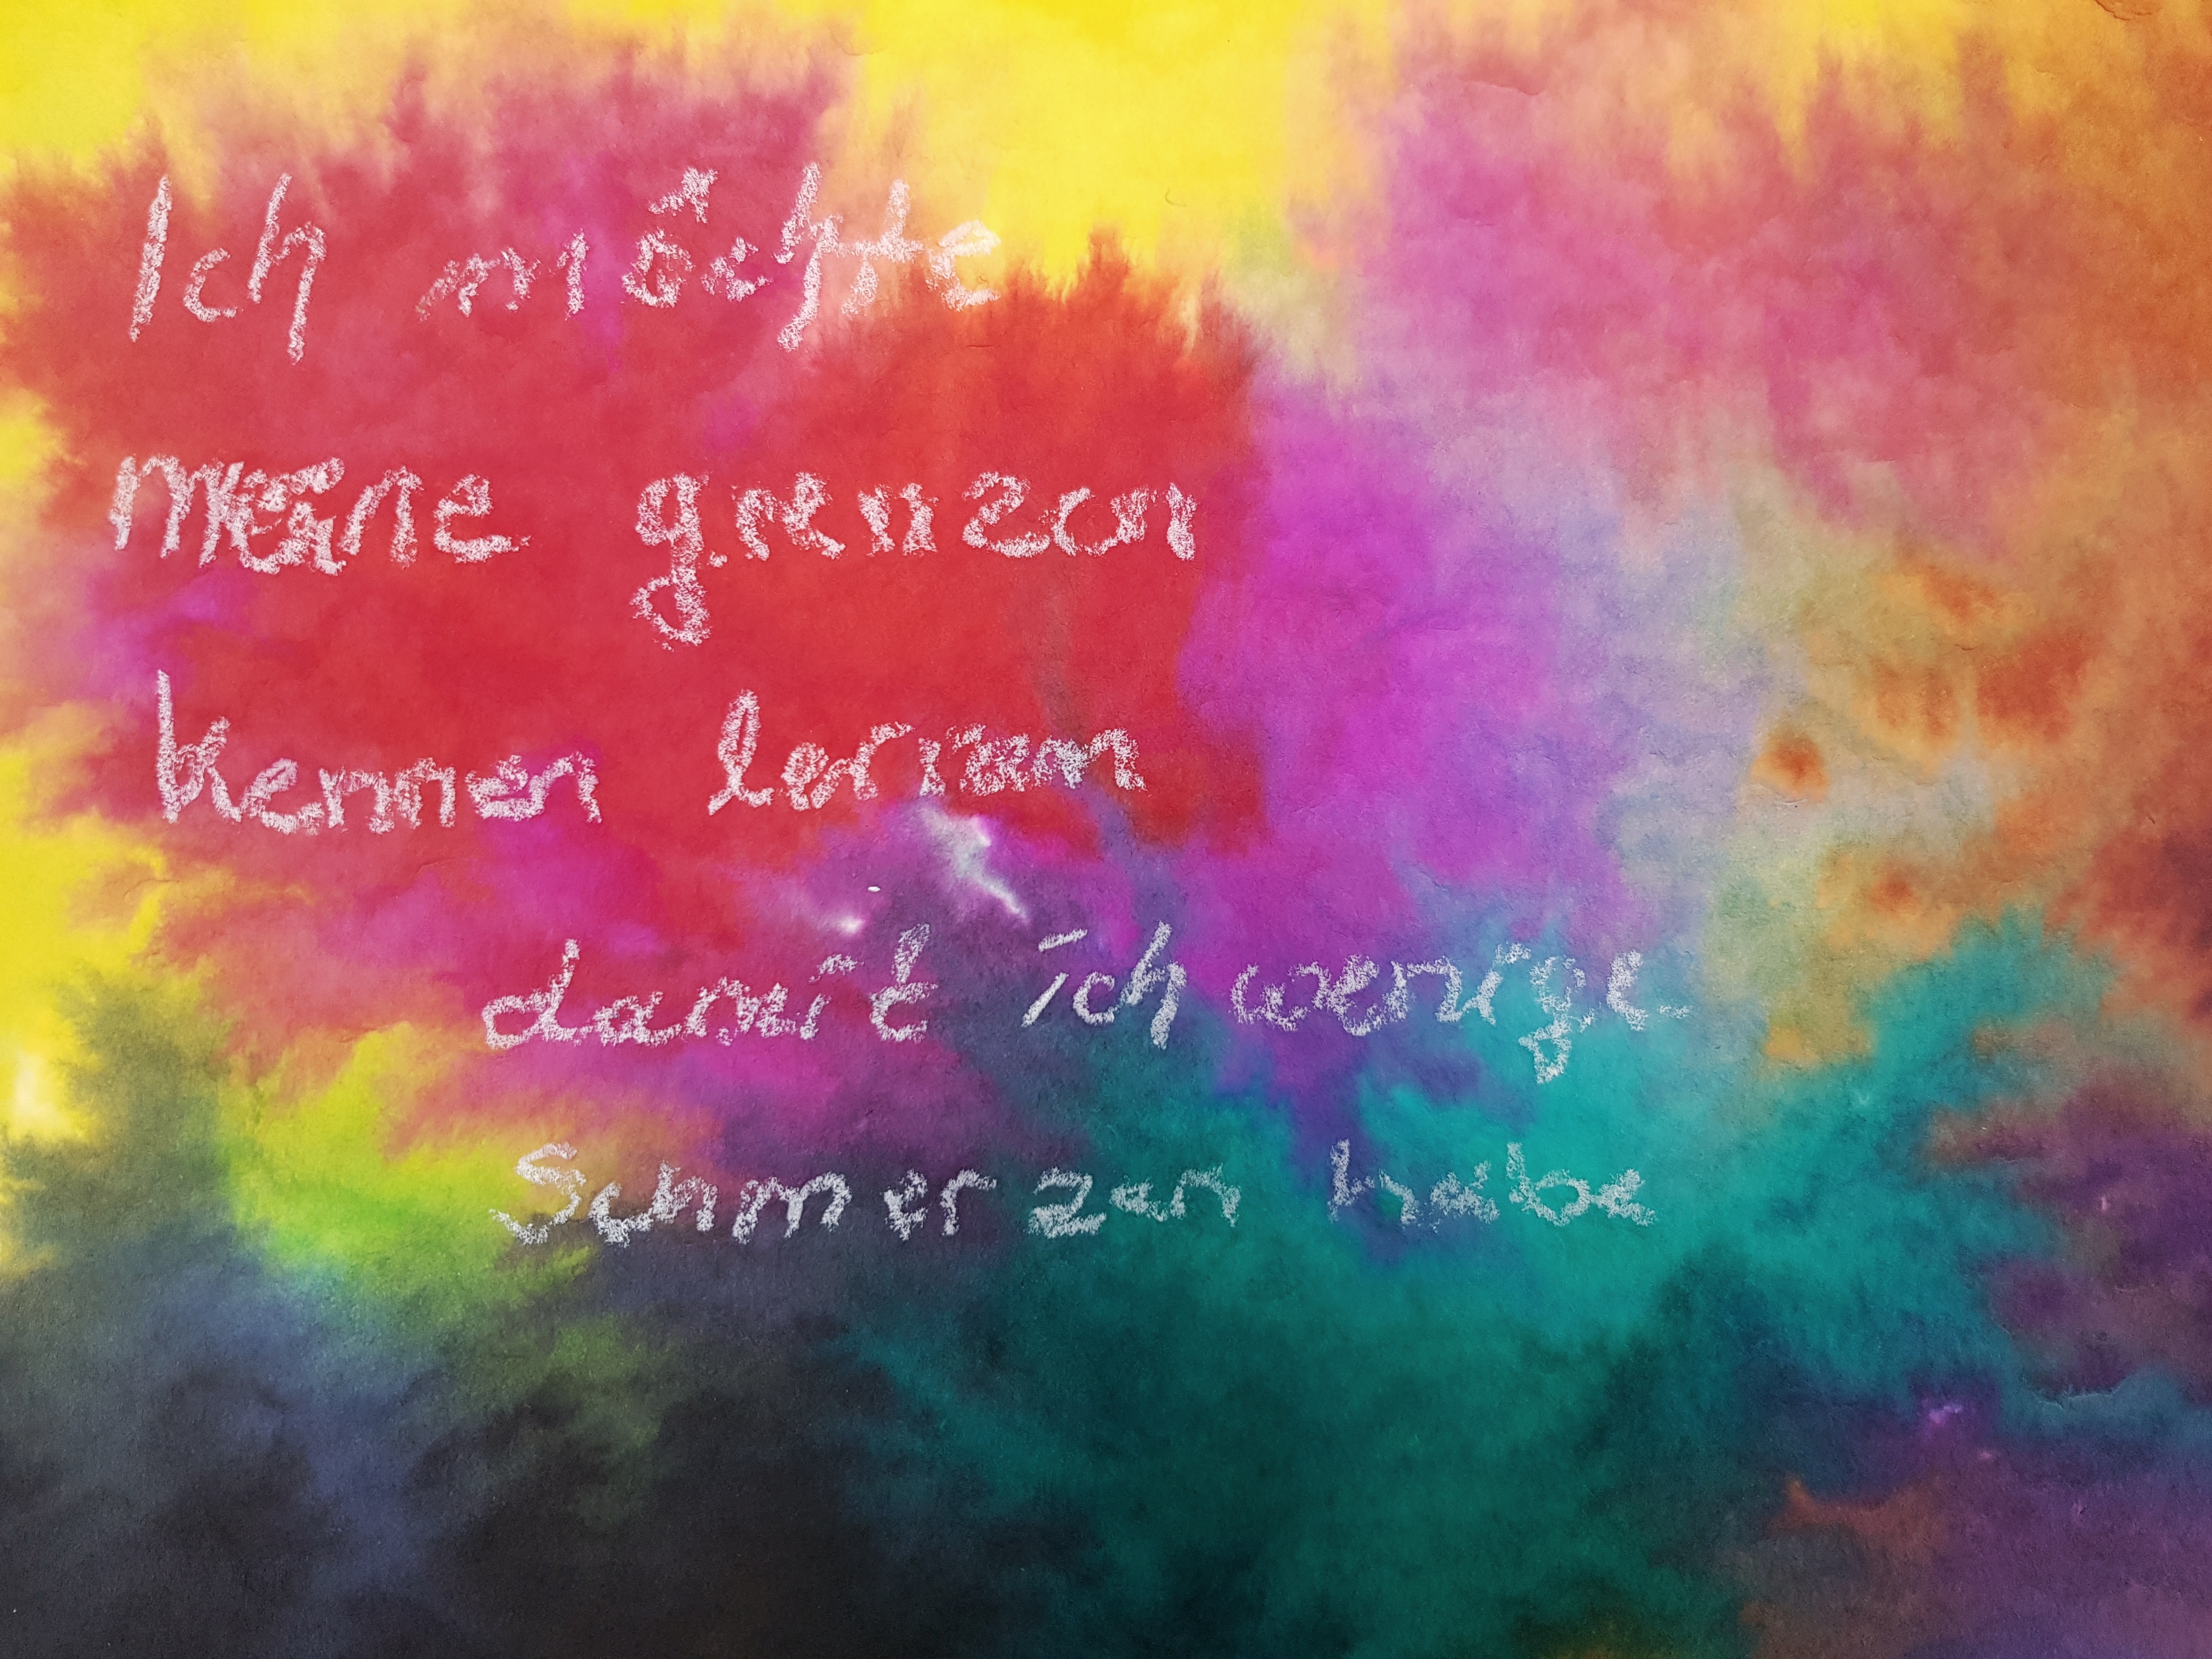 Ich möchte
meine grenzen
kennen lernen
damit ich wenige
Schmerzen habe